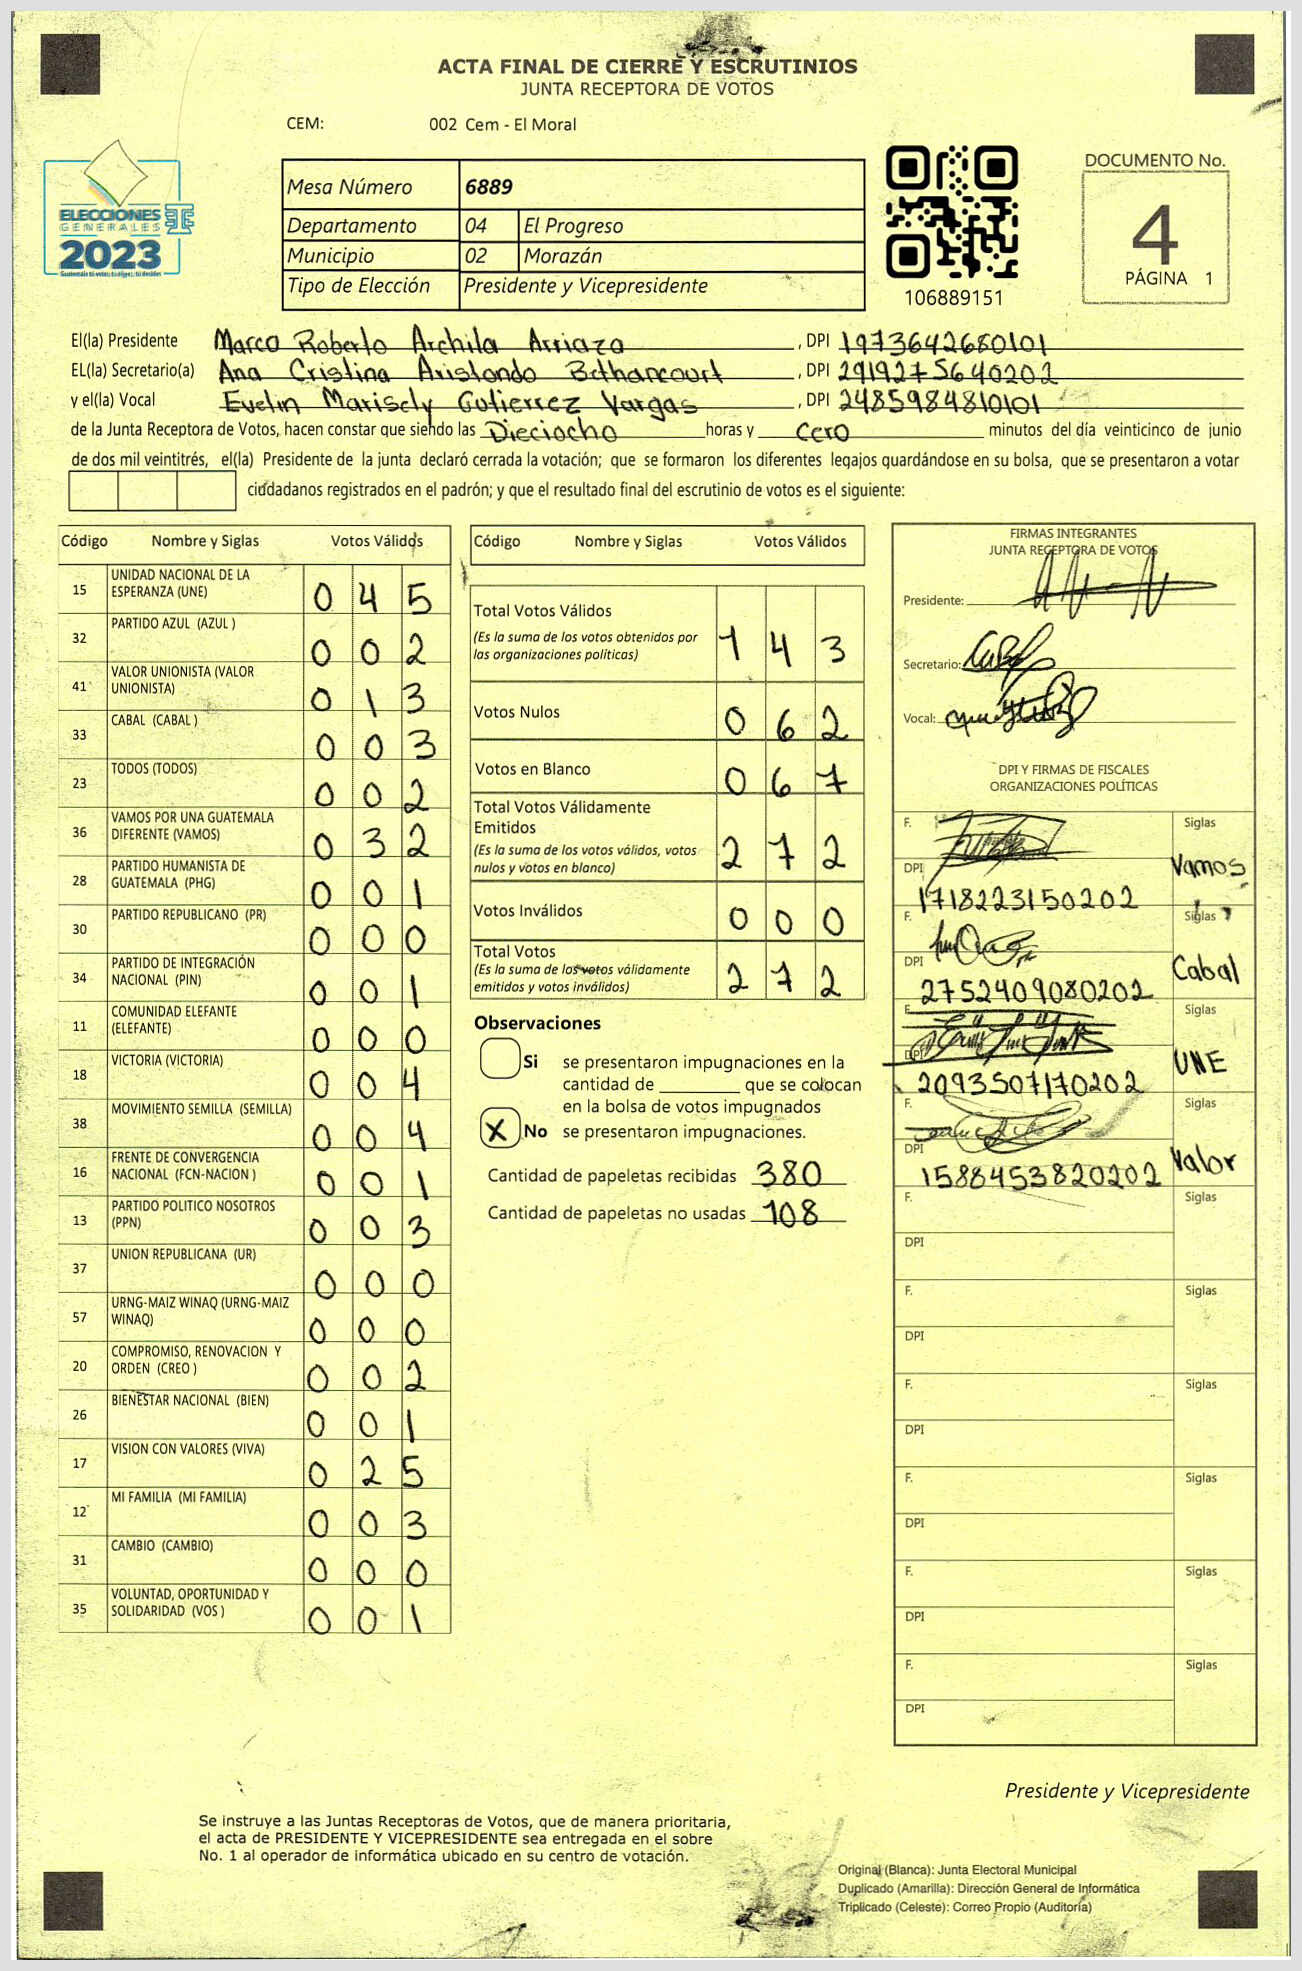 ACTA FINAL DE CIERRE Y ESCRUTINIOS
JUNTA RECEPTORA DE VOTOS
CEM: 002 Cem - El Moral
ELECCIONES
GENERALES
2023
Mesa Número 6889
Departamento 04 El Progreso
Municipio 02 Morazán
Tipo de Elección Presidente y Vicepresidente
106889151
DOCUMENTO No.
4
PÁGINA 1
El(la) Presidente Marco Roberto Archila Arriaza, DPI 1973642680101
EL(la) Secretario(a) Ana Cristina Aristondo Bethancourt, DPI 2919275640202
y el(la) Vocal Evelin Marisely Gutierrez Vargas, DPI 2485984810101
de la Junta Receptora de Votos, hacen constar que siendo las Dieciocho horas y Cero minutos del día veinticinco de junio
de dos mil veintitrés, el(la) Presidente de la junta declaró cerrada la votación; que se formaron los diferentes legajos guardándose en su bolsa, que se presentaron a votar
ciudadanos registrados en el padrón; y que el resultado final del escrutinio de votos es el siguiente:
Código Nombre y Siglas Votos Válidos
15 UNIDAD NACIONAL DE LA
ESPERANZA (UNE) 0 4 5
32 PARTIDO AZUL (AZUL ) 0 0 2
41 VALOR UNIONISTA (VALOR
UNIONISTA) 0 1 3
33 CABAL (CABAL ) 0 0 3
23 TODOS (TODOS) 0 0 2
36 VAMOS POR UNA GUATEMALA
DIFERENTE (VAMOS) 0 3 2
28 PARTIDO HUMANISTA DE
GUATEMALA (PHG) 0 0 1
30 PARTIDO REPUBLICANO (PR) 0 0 0
34 PARTIDO DE INTEGRACIÓN
NACIONAL (PIN) 0 0 1
11 COMUNIDAD ELEFANTE
(ELEFANTE) 0 0 0
18 VICTORIA (VICTORIA) 0 0 4
38 MOVIMIENTO SEMILLA (SEMILLA) 0 0 4
16 FRENTE DE CONVERGENCIA
NACIONAL (FCN-NACION ) 0 0 1
13 PARTIDO POLITICO NOSOTROS
(PPN) 0 0 3
37 UNION REPUBLICANA (UR) 0 0 0
57 URNG-MAIZ WINAQ (URNG-MAIZ
WINAQ) 0 0 0
20 COMPROMISO, RENOVACION Y
ORDEN (CREO ) 0 0 2
26 BIENESTAR NACIONAL (BIEN) 0 0 1
17 VISION CON VALORES (VIVA) 0 2 5
12 MI FAMILIA (MI FAMILIA) 0 0 3
31 CAMBIO (CAMBIO) 0 0 0
35 VOLUNTAD, OPORTUNIDAD Y
SOLIDARIDAD (VOS ) 0 0 1
Código Nombre y Siglas Votos Válidos
Total Votos Válidos
(Es la suma de los votos obtenidos por
las organizaciones politicas) 1 4 3
Votos Nulos 0 6 2
Votos en Blanco 0 6 7
Total Votos Válidamente
Emitidos
(Es la suma de los votos válidos, votos
nulos y votos en blanco) 2 7 2
Votos Inválidos 0 0 0
Total Votos
(Es la suma de los votos válidamente
emitidos y votos inválidos) 2 7 2
Observaciones
Si se presentaron impugnaciones en la
cantidad de ________ que se colocan
en la bolsa de votos impugnados
X No se presentaron impugnaciones.
Cantidad de papeletas recibidas 380
Cantidad de papeletas no usadas 108
FIRMAS INTEGRANTES
JUNTA RECEPTORA DE VOTOS
Presidente:
Secretario:
Vocal:
DPI Y FIRMAS DE FISCALES
ORGANIZACIONES POLÍTICAS
F. Siglas
DPI 1718223150202 Vamos
F. Siglas
DPI 2752409080202 Cabal
F. Siglas
DPI 2093507170202 UNE
F. Siglas
DPI 1588453820202 Valor
F. Siglas
DPI
F. Siglas
DPI
F. Siglas
DPI
F. Siglas
DPI
F. Siglas
DPI
F. Siglas
DPI
Presidente y Vicepresidente
Se instruye a las Juntas Receptoras de Votos, que de manera prioritaria,
el acta de PRESIDENTE Y VICEPRESIDENTE sea entregada en el sobre
No. 1 al operador de informática ubicado en su centro de votación.
Original (Blanca): Junta Electoral Municipal
Duplicado (Amarilla): Dirección General de Informática
Triplicado (Celeste): Correo Propio (Auditoría)